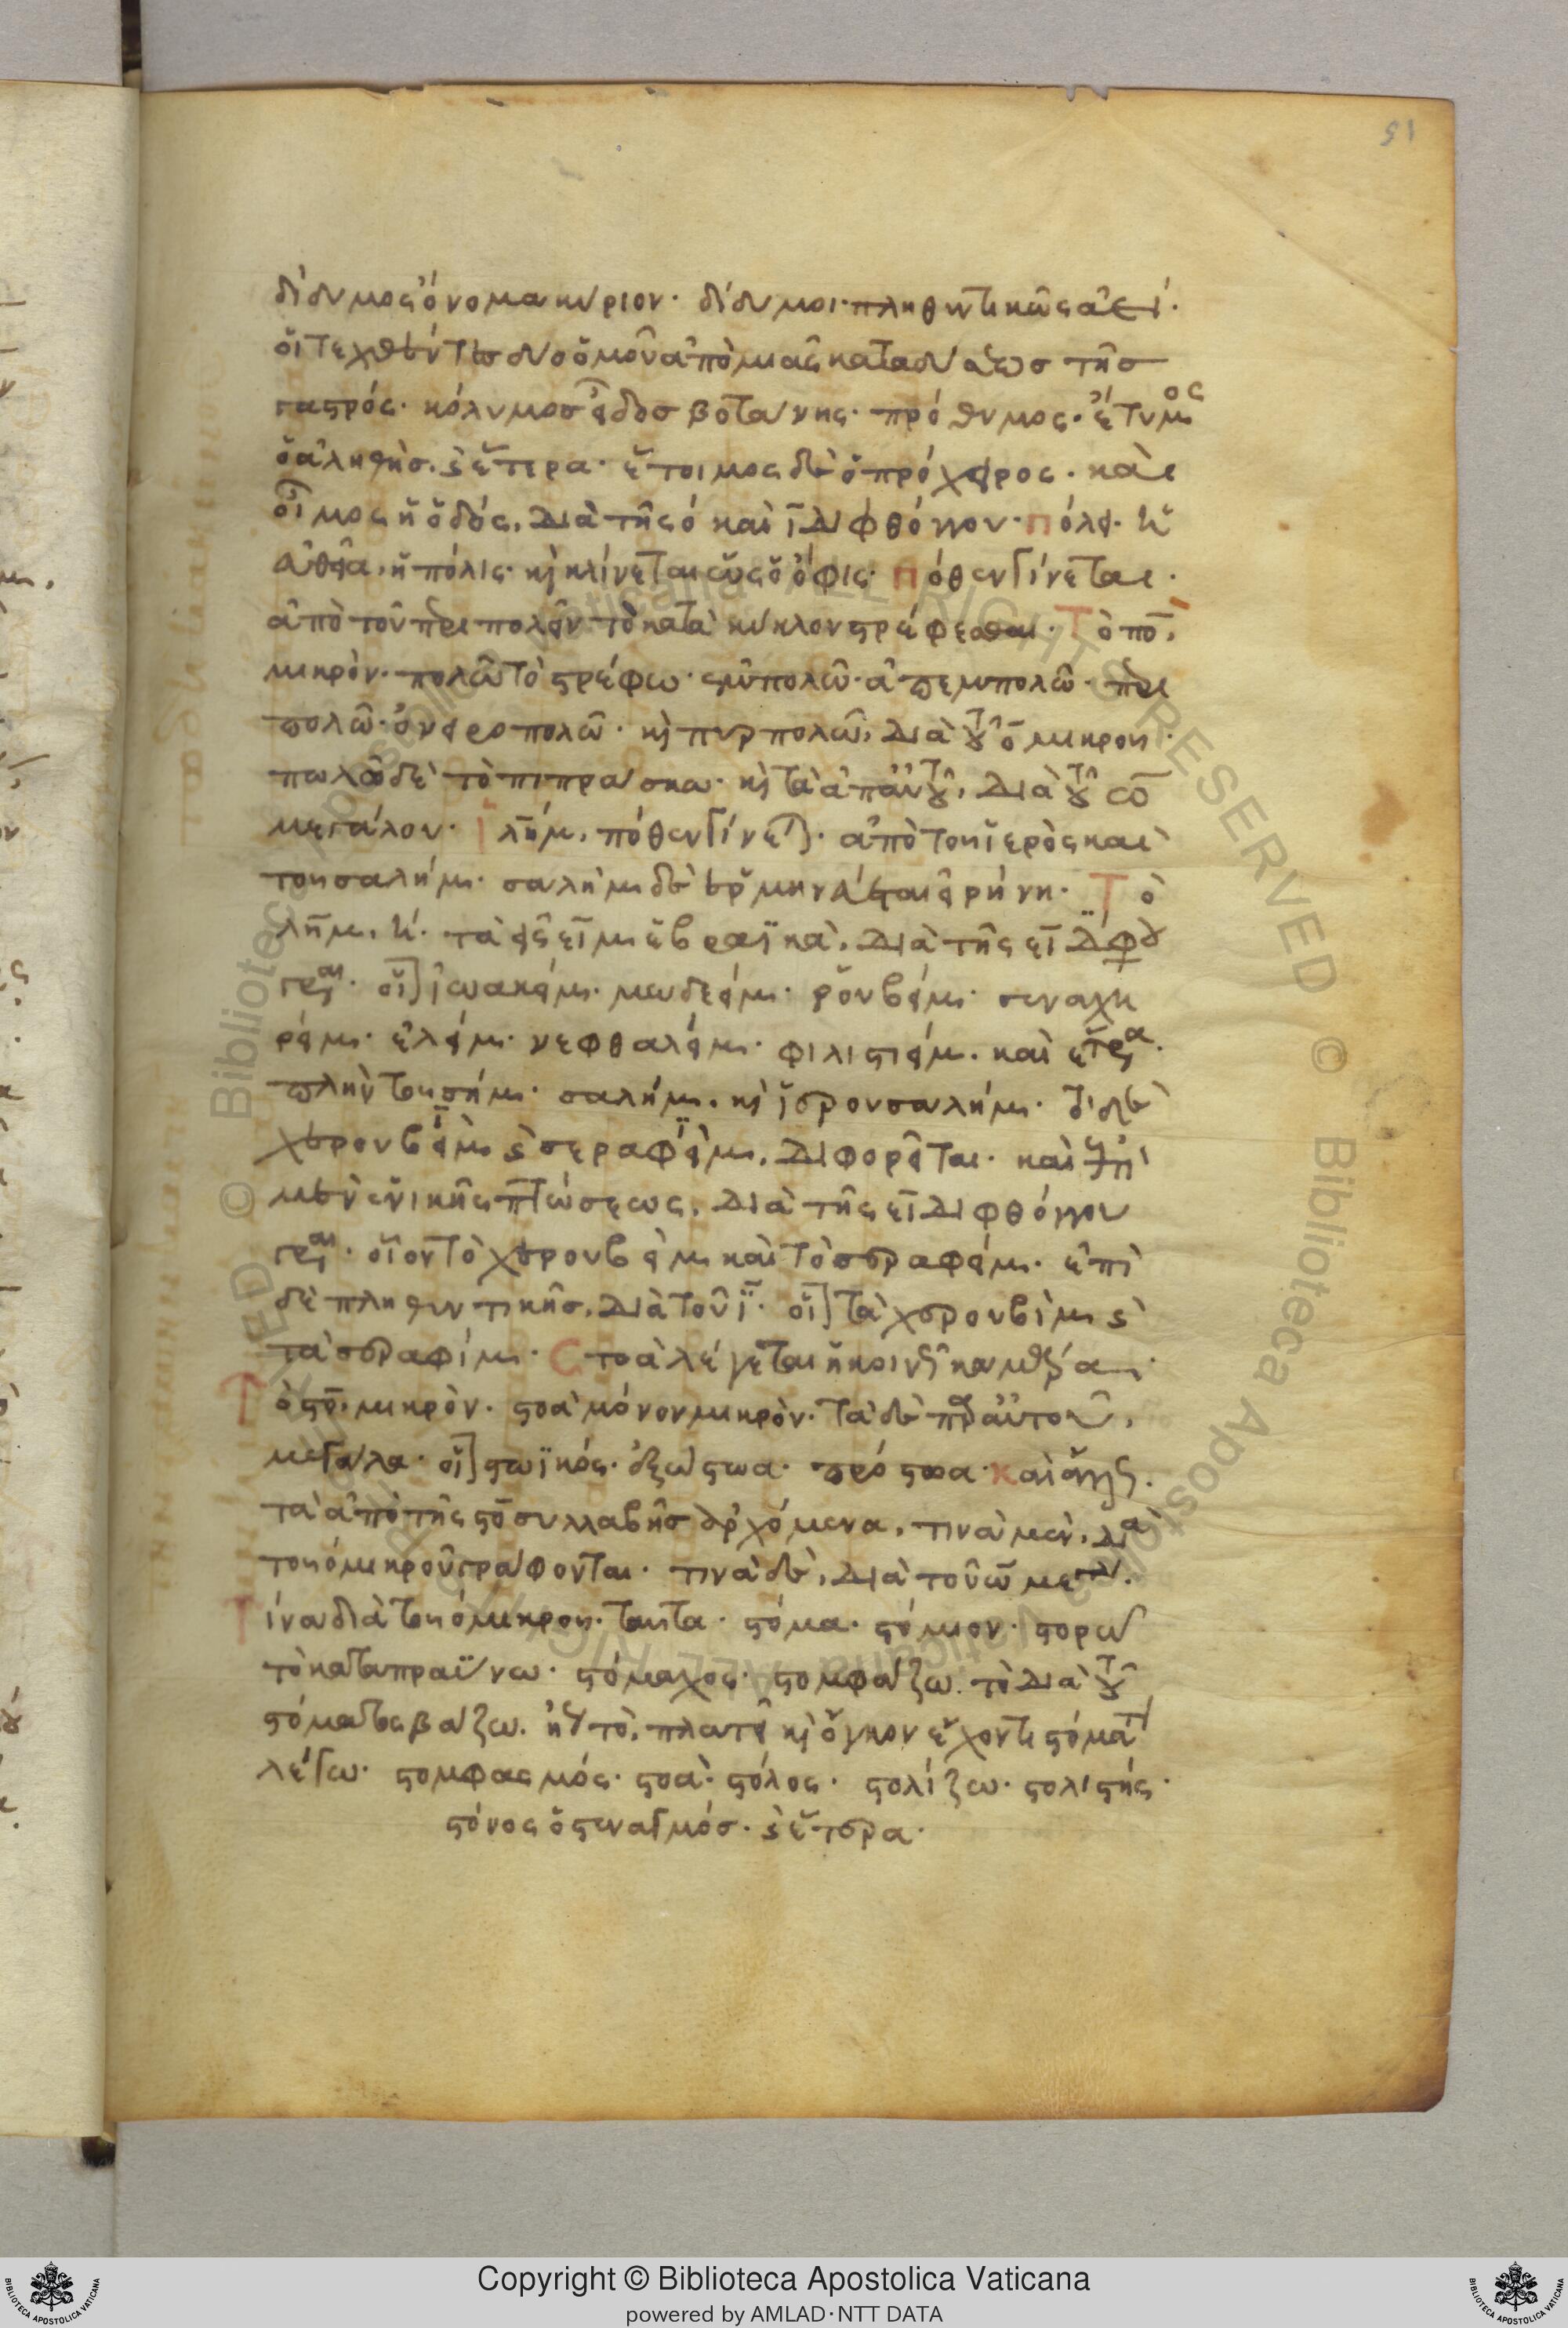 51
δίδυμος ὄνομα κύριον· δίδυμοι· πληθυντικῶς ἀεί·
οἱ τεχθέντες δύο ὁμοῦ ἀπὸ μιᾶς καταδύσεως τῆς
γαστρός· κόλυμος εἶδος βοτάνης· πρόθυμος· ἔτυμος
ὁ ἀληθής· καὶ ἕτερα· ἕτοιμος δὲ ὁ πρόχειρος· καὶ
οἶμος ἡ ὁδός, διὰ τῆς ο καὶ ι διφθόγγου· πόλις· ἡ
ἡ πόλις· καὶ κλίνεται ὡς ὁ ὄφις· πόθεν γίνεται·
ἀπὸ τοῦ περιπολεῖν τὸ κατὰ κύκλον στρέφεσθαι· Τὸ πο,
μικρόν· πολῶ τὸ στρέφω· ἐμπολῶ· ἀπεμπολῶ· περι
πολῶ· ὀνειροπολῶ· καὶ πυρπολῶ, διὰ τοῦ ο μικροῦ·
πωλῶ δὲ τὸ πιπράσκω· καὶ τὰ ἀπ' αὐτοῦ, διὰ τοῦ ω
μεγάλου· Ιλήμ, πόθεν γίνεται· ἀπὸ τοῦ ἱερὸς καὶ
τοῦ σαλήμ· σαλὴμ δὲ ἑρμηνεύεται εἰρήνη· Τὸ
λημ, η· τὰ εἰς ειμ ἑβραϊκὰ, διὰ τῆς ει διφθόγγου
γράφεται· οἷον ἰωακείμ· μωδεείμ· ῥουβείμ· σεναχη
ρείμ· ἐλείμ· νεφθαλείμ· φιλιστιείμ· καὶ ἕτερα·
πλὴν τοῦ σήμ· σαλήμ, καὶ ἱερουσαλήμ· τὸ δὲ
χερουβεὶμ καὶ σεραφεὶμ, διφορεῖται· καὶ ἐπὶ
μὲν ἑνικῆς πτώσεως, διὰ τῆς ει διφθόγγου
γράφεται· οἷον τὸ χερουβεὶμ καὶ τὸ σεραφείμ· ἐπὶ
δὲ πληθυντικῆς, διὰ τοῦ ι· οἷον τὰ χερουβὶμ καὶ
τὰ σεραφίμ· Στοὰ λέγεται ἡ κοινῶς καμάρα·
Τὸ στο, μικρόν· στοὰ μόνον μικρόν· τὰ δὲ παρ' αὐτοῦ,
μεγάλα· οἷον στωϊκός· ὀξώστωα· πρόστωα· καὶ ἄλλως·
τὰ ἀπὸ τῆς στο συλλαβῆς ἀρχόμενα, τινὰ μὲν, διὰ
τοῦ ὀ μικροῦ γράφονται· τινὰ δὲ, διὰ τοῦ ω μεγάλου·
Τίνα διὰ τοῦ ὀ μικροῦ· ταῦτα· στόμα· στόμιον· στορῶ
τὸ καταπραΰνω· στόμαχος· στομφάζω. τὸ διὰ τοῦ
στόματος βάζω. ἢ τὸ, πλατεῖ καὶ ὄγκον ἔχοντι στόματι
λέγω· στομφασμός· στοά· στόλος· στολίζω· στολιστής·
στόνος ὁ στεναγμός· καὶ ἕτερα·
Copyright © Biblioteca Apostolica Vaticana
powered by AMLAD·NTT DATA